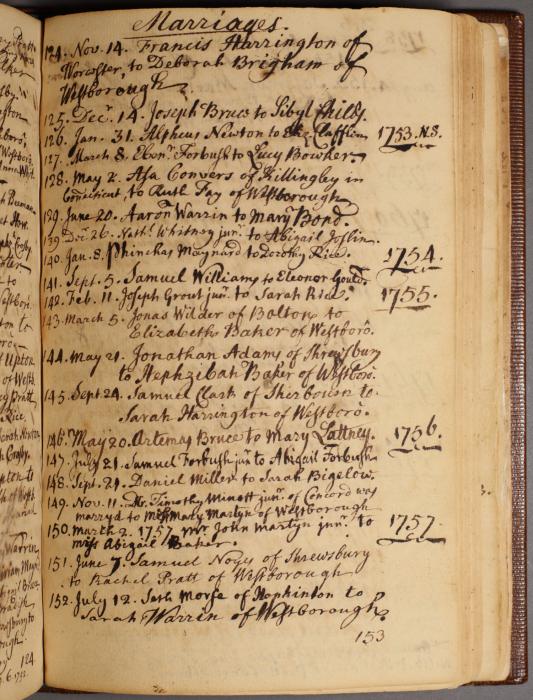 Marriages.
124. Nov. 14. Francis Harrington of
Worcester, to Deborah Brigham of
Westborough
125. Decr. 14. Joseph Bruce to Sibyl Childs.
126. Jan. 31. Alpheus Newton to Clafflin 1753. N.S.
127. March 8. Ebenr. Forbush to Lucy Bowker
128. May 2. Asa Convers of Killingley in
Connecticut, to Ruth Fay of Westborough
129. June 20. Aaron Warrin to Mary Bond.
139. Decr. 26. Nathl. Whitney junr. to Abigail Joslin.
140. Jan. 8. Phinehas Maynard to Dorothy Rice. 1754.
141. Sept. 5. Samuel Williams to Eleonor Gould
142. Feb. 11. Joseph Grout junr. to Sarah Rice. 1755.
143. March 5. Jonas Wilder of Bolton to
Elizabeth Baker of Westboro.
144. May 21. Jonathan Adams of Shrewsbury
to Hephzibah Baker of Westboro.
145. Sept. 24. Samuel Clark of Sherbourn to
Sarah Harrington of Westboro.
146. May 20. Artemas Bruce to Mary 1756.
147. July 21. Samuel Forbush junr. to Abigail Forbush
148. Sept. 21. Daniel Miller to Sarah Bigelow.
149. Nov. 11. Mr. Timothy Minott junr. of Concord was
marryd to Miss Mary Martyn of Westborough
150. March 2. 1757. Mr John Martyn junr. to 1757.
Miss Abigail Baker.
151. June 7. Samuel Noys of Shrewsbury
to Rachel Pratt of Westborough
152. July 12. Seth Morse of Hopkinton to
Sarah Warrin of Westborough
153